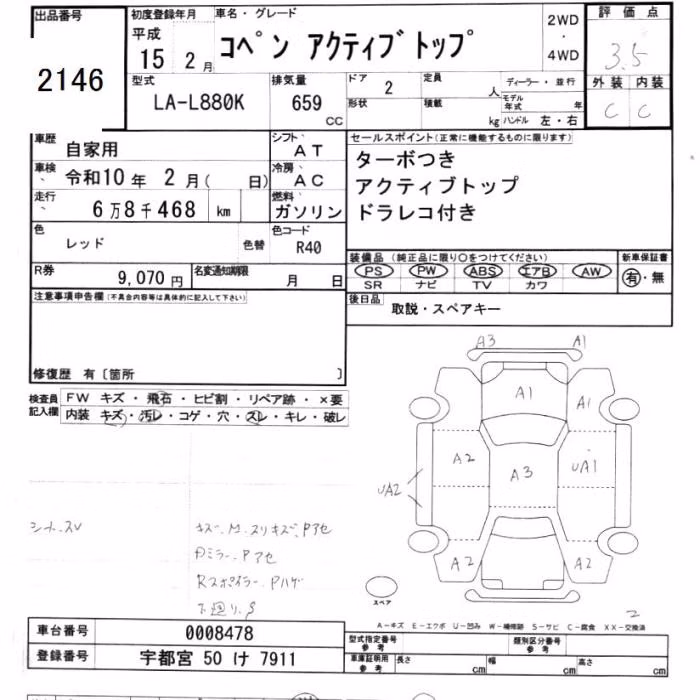 出品番号
2146
初度登録年月
平成
15 2 月
車名・グレード
コペン アクティブトップ
2WD
・
4WD
評価点
3.5
外装 内装
C C
型式
LA-L880K
排気量
659
CC
ドア
2
形状
定員
人
積載
kg
ディーラー・並行
モデル年式 年
ハンドル 左・右
車歴
自家用
シフト
AT
車検
令和10 年 2 月( 日)
冷房
AC
走行
6万8千468 km
燃料
ガソリン
色
レッド
色替
色コード
R40
R券
9,070 円
名変通知期限
月 日
セールスポイント(正常に機能するものに限ります)
ターボつき
アクティブトップ
ドラレコ付き
装備品 (純正品に限り○をつけてください)
PS PW ABS エアB AW
SR ナビ TV カワ
新車保証書
有・無
後日品
取説・スペアキー
注意事項申告欄(不具合内容等は具体的に記入して下さい)
修復歴 有〔箇所 〕
検査員記入欄
FW キズ・飛石・ヒビ割・リペア跡・×要
内装 キズ・汚レ・コゲ・穴・スレ・キレ・破レ
A3 A1
A1 A1
A2 A3 UA1
UA2
A2 A2
スペア
2
シートスレ
キズ、M、スリキズ、Pアセ
Dミラー、Pアセ
Rスポイラー、Pハゲ
下廻り、S
A−キズ E−エクボ U−凹み W−補修跡 S−サビ C−腐食 XX−交換済
車台番号
0008478
登録番号
宇都宮 50 け 7911
型式指定番号
参考
類別区分番号
参考
車庫証明用
参考
長さ cm 幅 cm 高さ cm